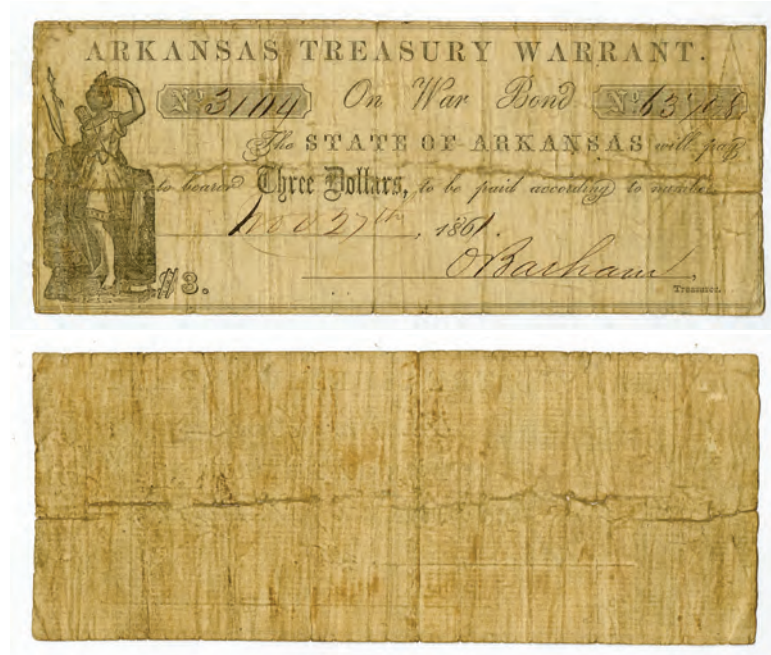 ARKANSAS TREASURY WARRANT.
No. 3104 On War Bond No. 63708
The STATE OF ARKANSAS will pay
to bearer Three Dollars, to be paid according to number.
Nov 27th, 1861.
O Basham,
$3. Treasurer.